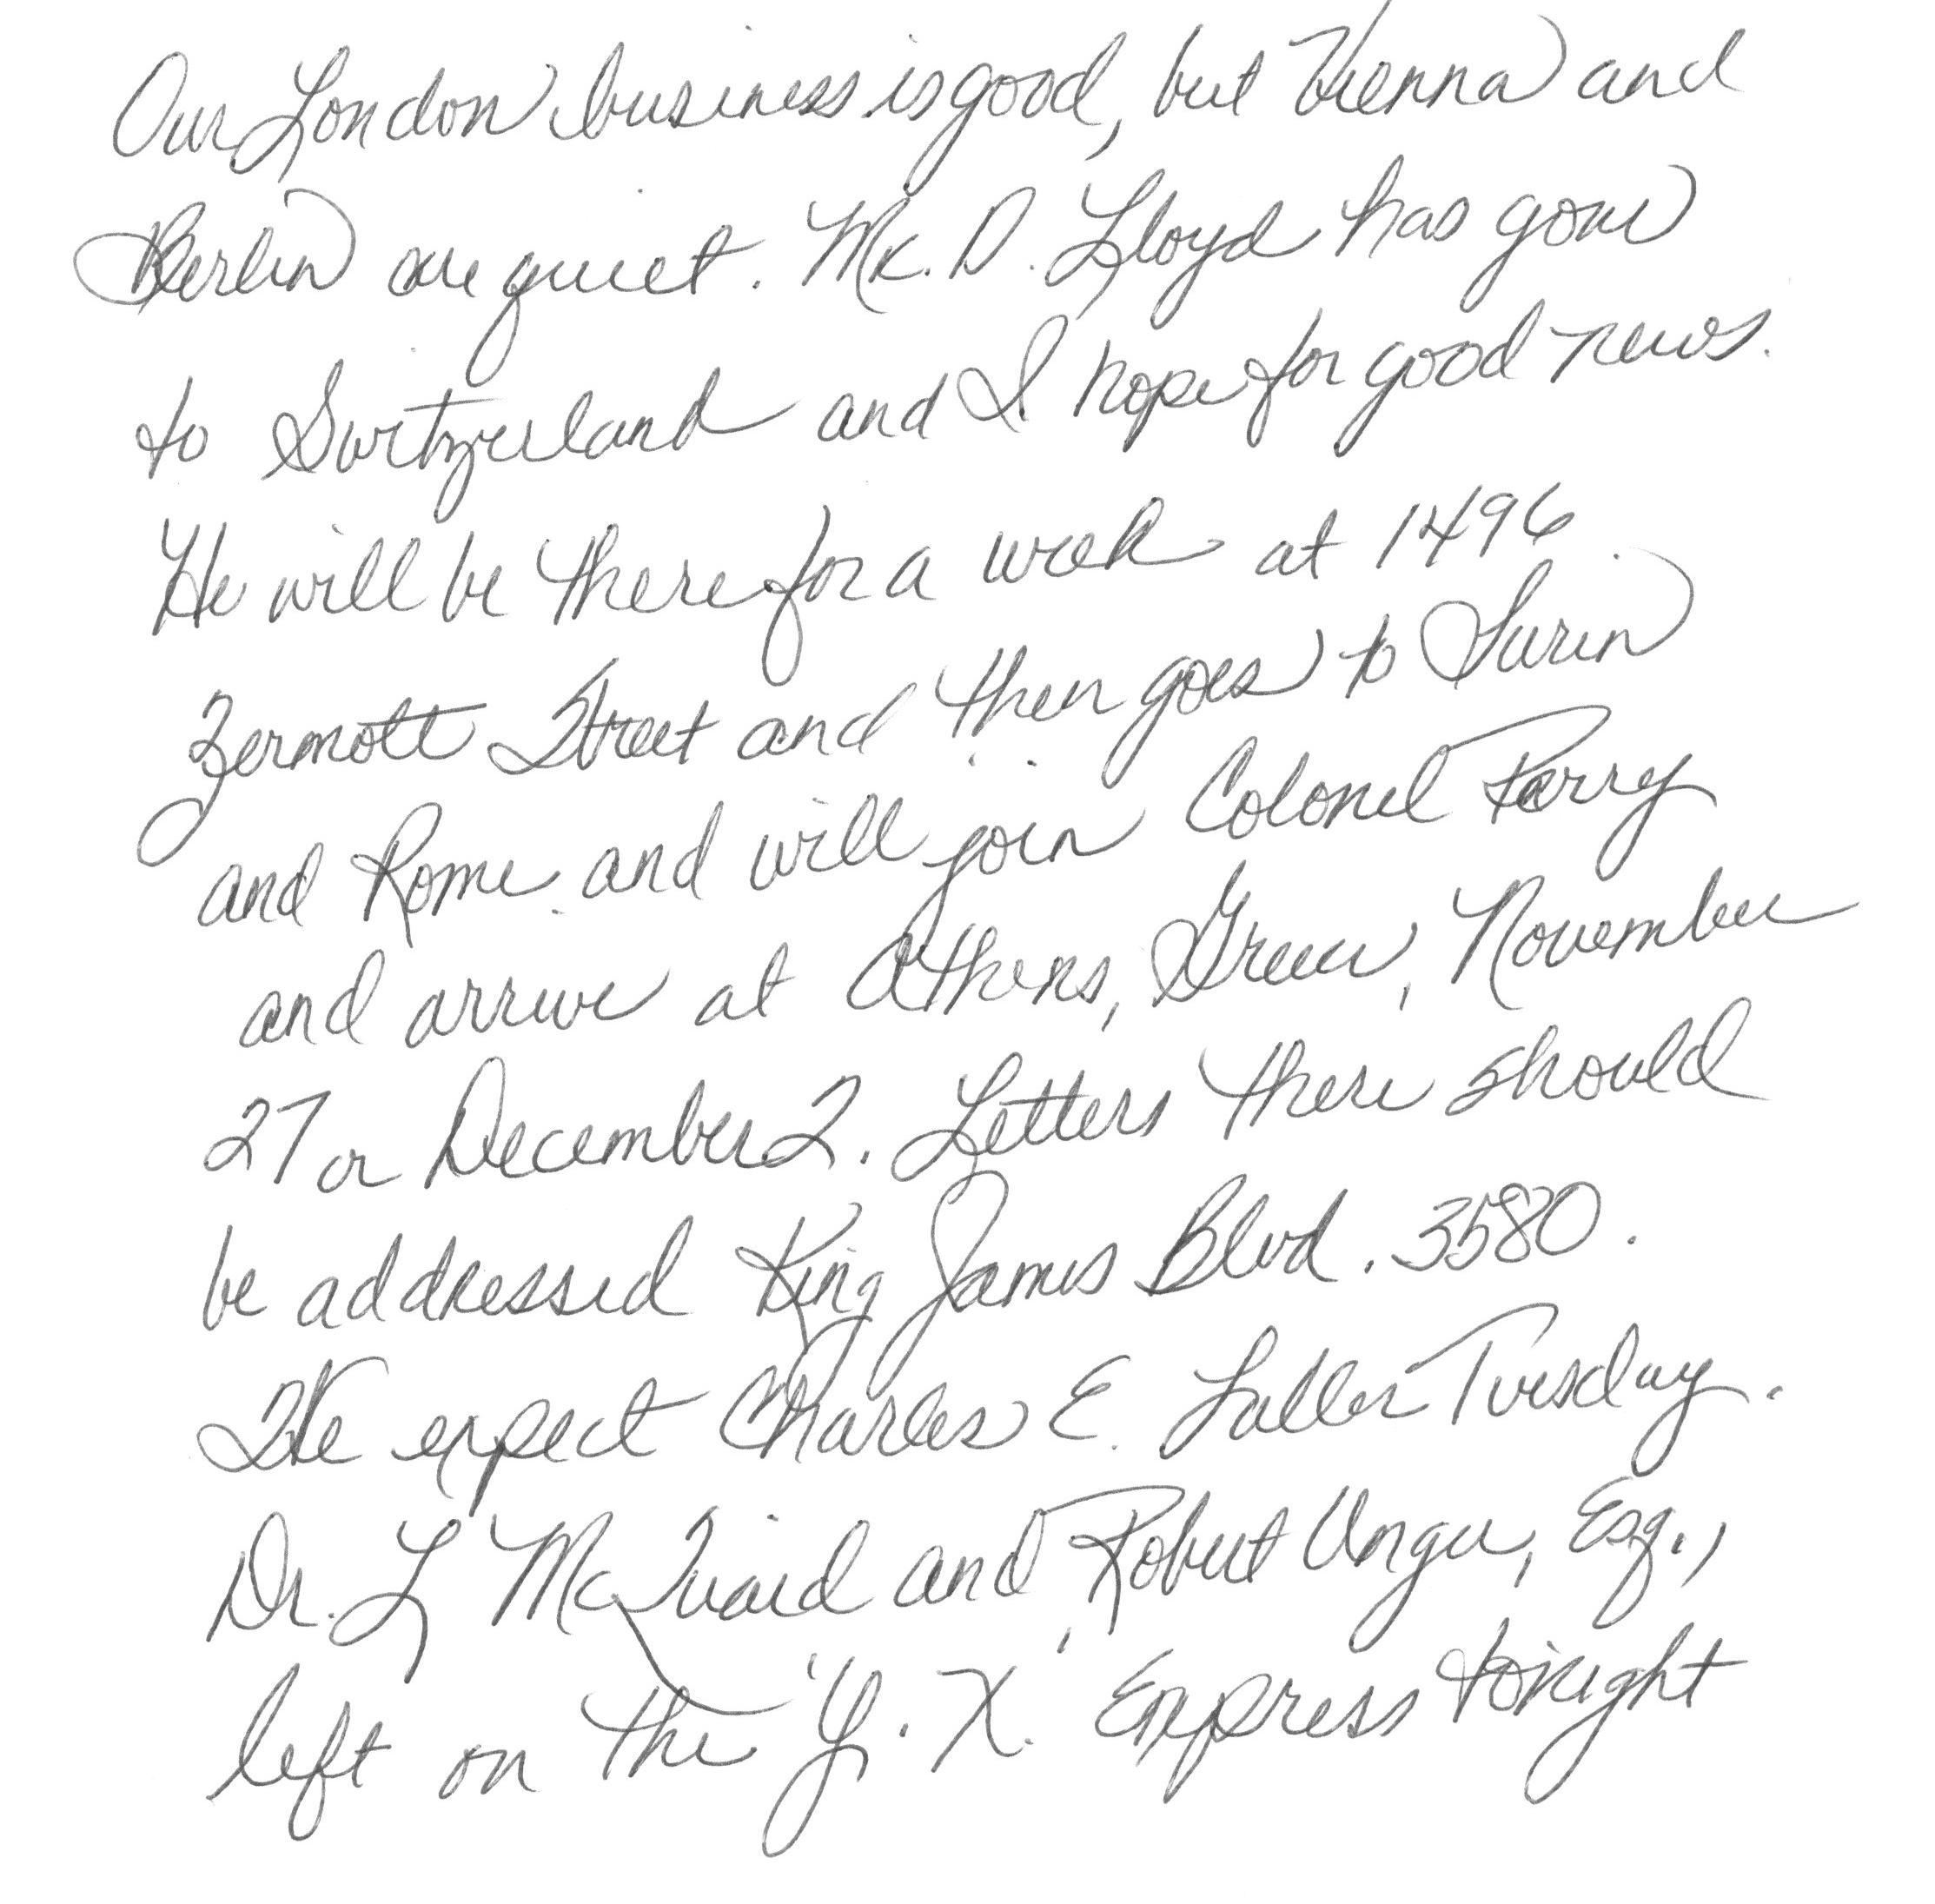 Our London business is good, but Vienna and
Berlin are quiet. Mr. D. Lloyd has gone
to Switzerland and I hope for good news.
He will be there for a week at 1496
Zermott Street and then goes to Turin
and Rome and will join Colonel Parry
and arrive at Athens, Greece, November
27 or December 2. Letters there should
be addressed King James Blvd. 3580.
We expect Charles E. Fuller Tuesday.
Dr. L McQuaid and Robert Unger, Esq.,
left on the 'Y. X.' Express tonight